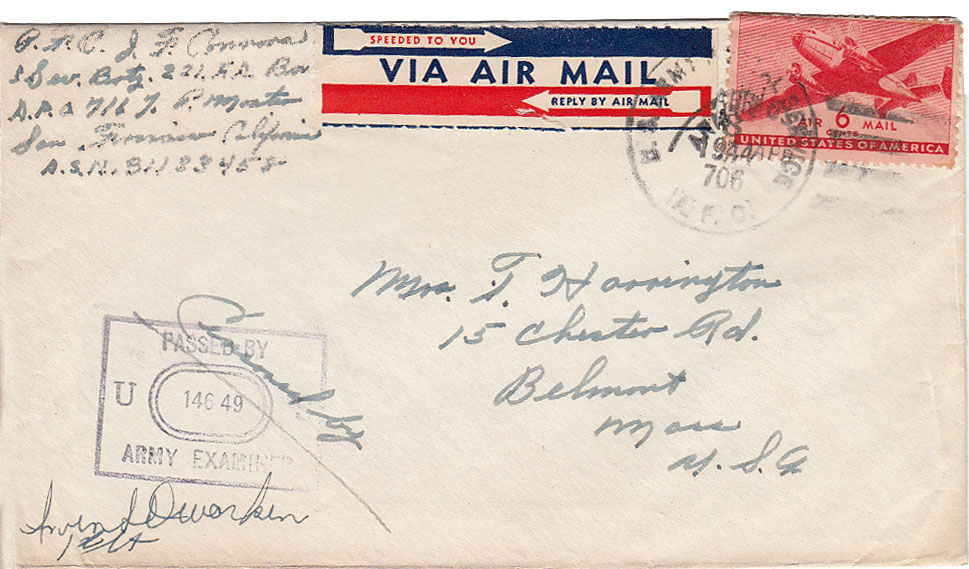 P.F.C. J. F. Connors
S Sev. Boty. 221 F.A. Bn
A.P.O 716 % P. Master
San Francisco California
A.S.N. 31133458
SPEEDED TO YOU
VIA AIR MAIL
REPLY BY AIR MAIL
U.S. ARMY
1944 APR
706
A.P.O.
AIR 6 MAIL
CENTS
UNITED STATES OF AMERICA
Mrs. T. Harrington
15 Chester Rd.
Belmont
Mass
U.S.A
Censored by
PASSED BY
U
146 49
ARMY EXAMINER
Dworken
1st Lt